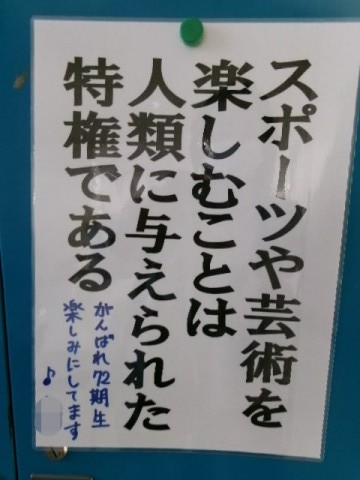 スポーツや芸術を
楽しむことは
人類に与えられた
特権である
がんばれ72期生
楽しみにしてます
♪